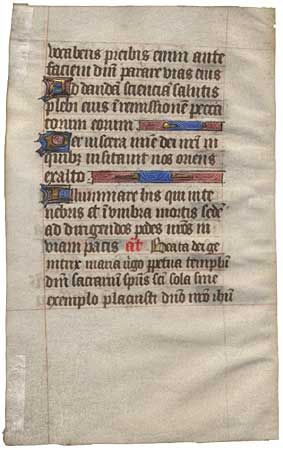 vocaberis preibis enim ante
faciem dni parare vias eius
Ad dandā scienciā salutis
plebi eius ī remissionē pecca
torum eorum
Per viscera mīe dei nrī in
quibz visitavit nos oriens
ex alto
Illuminare hiis qui in te
nebris et ī umbra mortis sedēt
ad dirigendos pedes nrōs in
viam pacis añ Beata dei ge
nitrix maria virgo ppetua templū
dnī sacrariū spūs scī sola sine
exemplo placuisti dnō nrō ihū